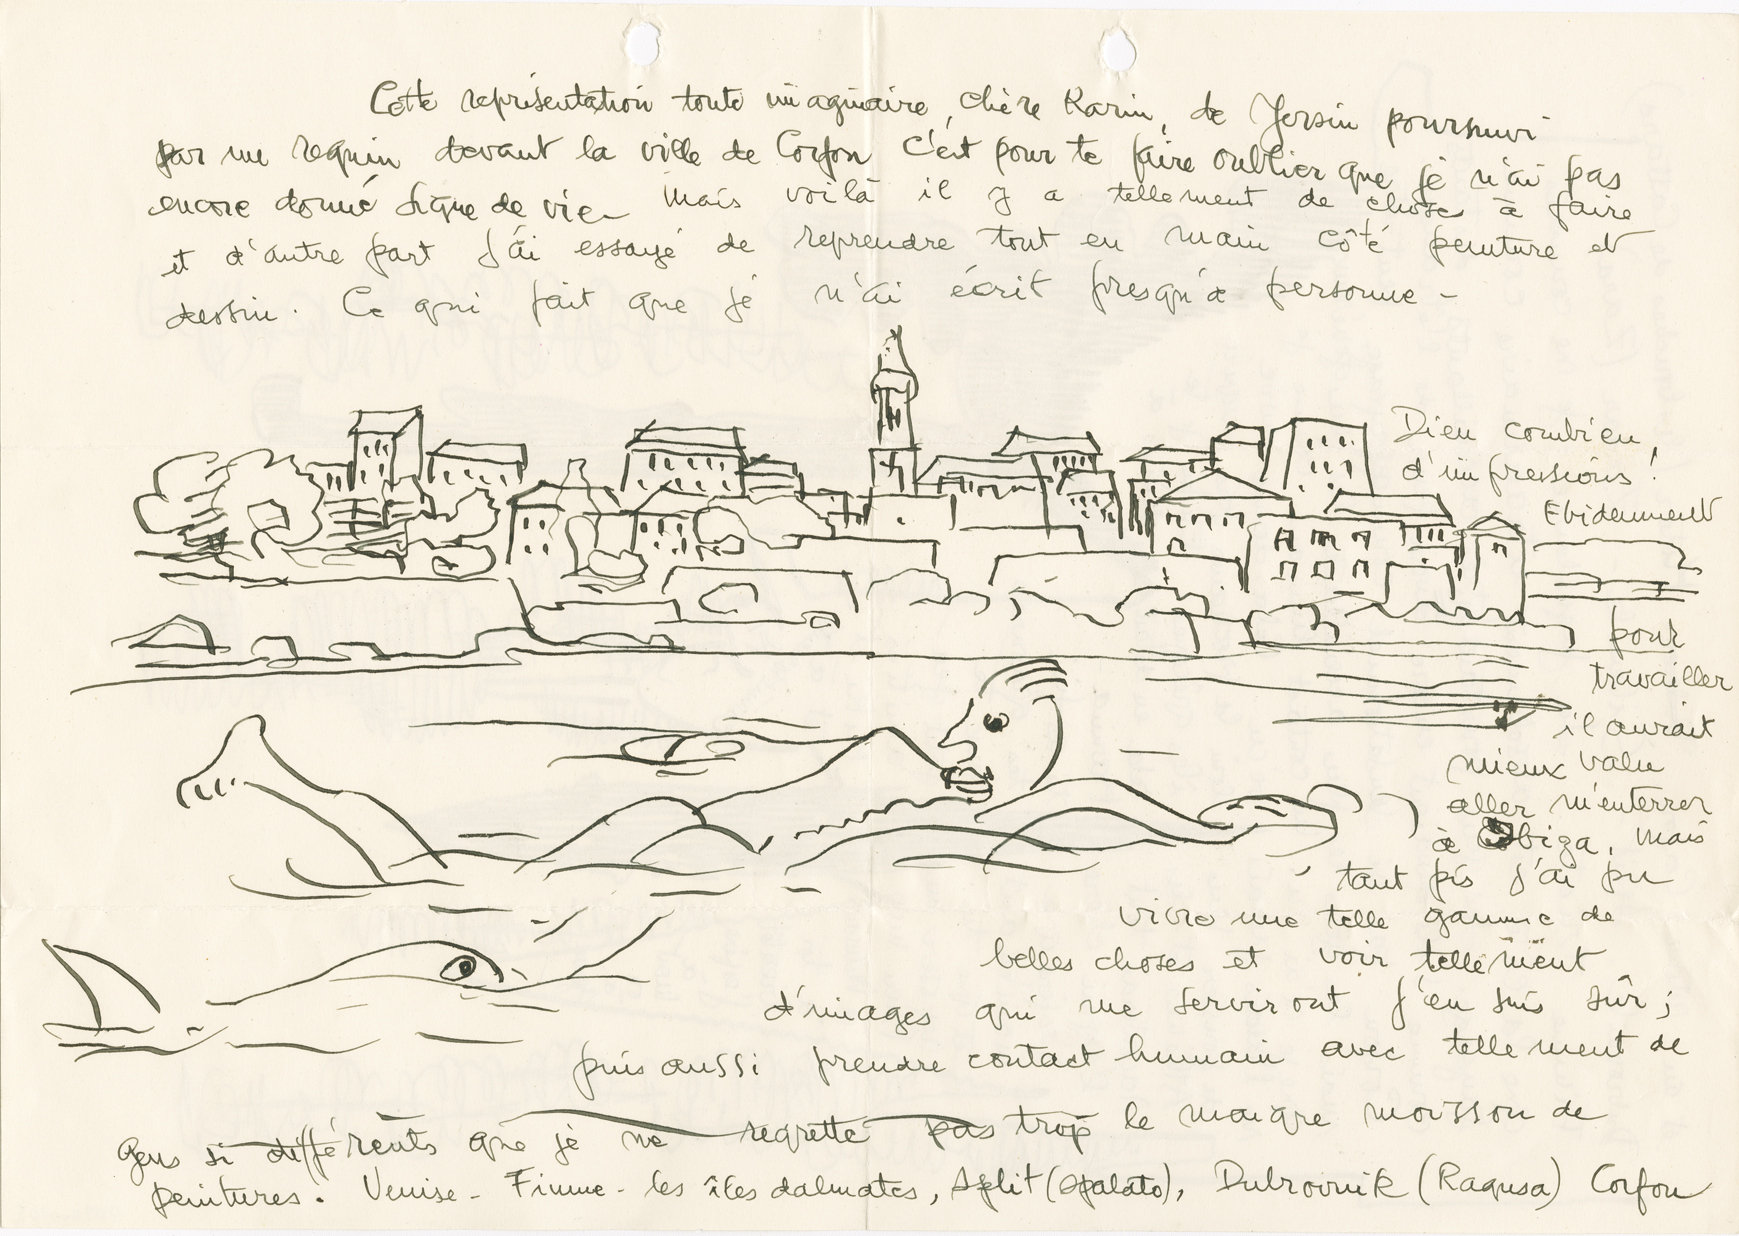 Cette représentation toute imaginaire, chère Karin, de Yersin poursuivi
par un requin devant la ville de Corfou c'est pour te faire oublier que je n'ai pas
encore donné signe de vie – Mais voilà il y a tellement de choses à faire
et d'autre part j'ai essayé de reprendre tout en main côté peinture et
dessin. Ce qui fait que je n'ai écrit presqu'à personne –
Dieu combien
d'impressions !
Evidemment
pour
travailler
il aurait
mieux valu
aller m'enterrer
à Ibiza, mais
tant pis j'ai pu
vivre une telle gamme de
belles choses et voir tellement
d'images qui me serviront j'en suis sûr ;
puis aussi prendre contact humain avec tellement de
gens si différents que je ne regrette pas trop le maigre moisson de
peintures. Venise – Fiume – les îles dalmates, Split (Spalato), Dubrovnik (Ragusa) Corfou